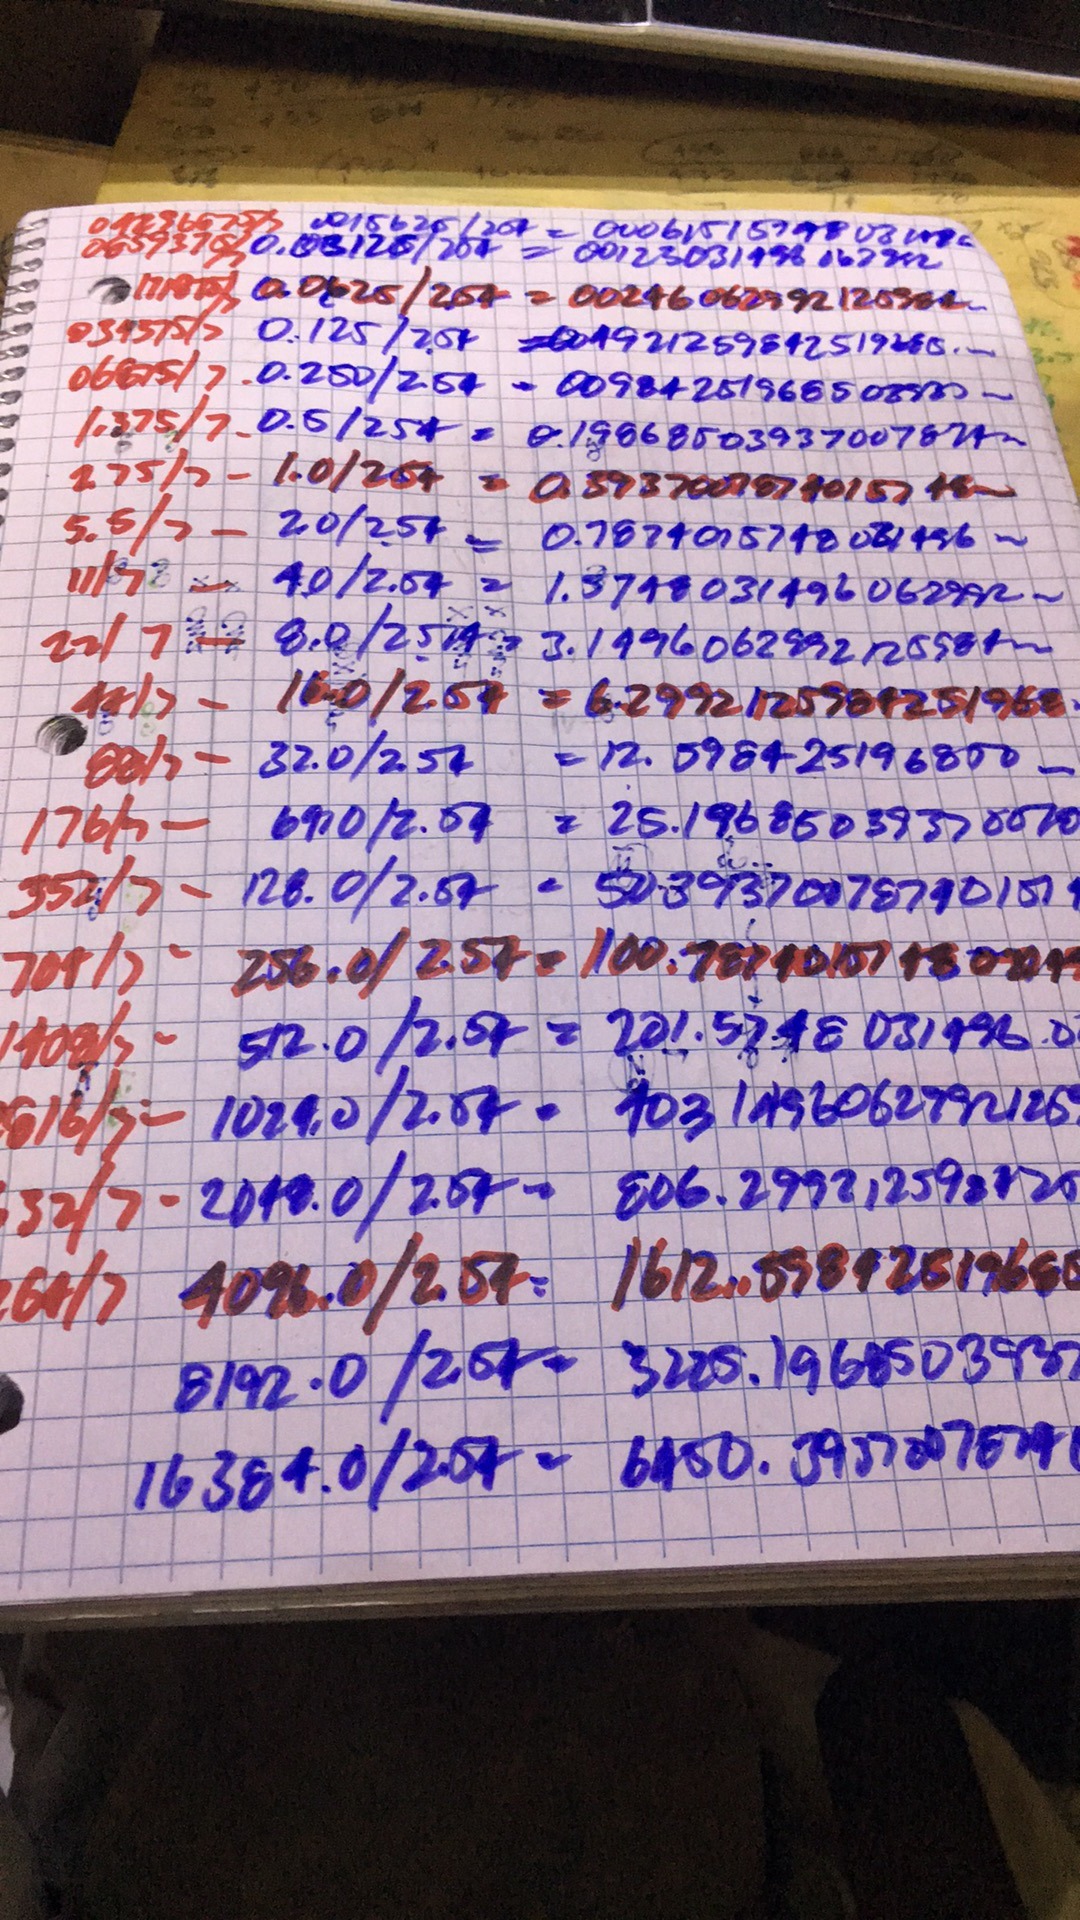 0.03125/254 = 00123031496062992
0.0625/254 = 0024606299212598
0.125/2.54 = 0049212598425196
0.250/2.54 - 00984251968503
1.375/7 - 0.5/254 = 0.19868503937007874~
2.75/7 - 1.0/254 = 0.39370078740157 48~
5.5/7 - 2.0/254 = 0.7874015748031496 ~
11/7 - 4.0/2.54 = 1.5748031496062992~
22/7 - 8.0/2.54 = 3.149606299212598~
44/7 - 16.0/2.54 = 6.299212598425 1968
88/7 - 32.0/2.54 = 12.598425196850
176/7 - 64.0/2.54 = 25.1968503937007
352/7 - 128.0/2.54 - 50393700787401574
704/7 - 256.0/2.54 = 100.7874015748031
1408/7 - 512.0/2.54 = 201.5748031496.0
816/7 - 1024.0/2.54 - 403149606299212598
632/7 - 2048.0/2.54 - 806.299212598425
264/7 4096.0/2.54= 1612..5984251968
8192.0/2.54 - 3225.1968503937
16384.0/2.54 - 6450.3937007874